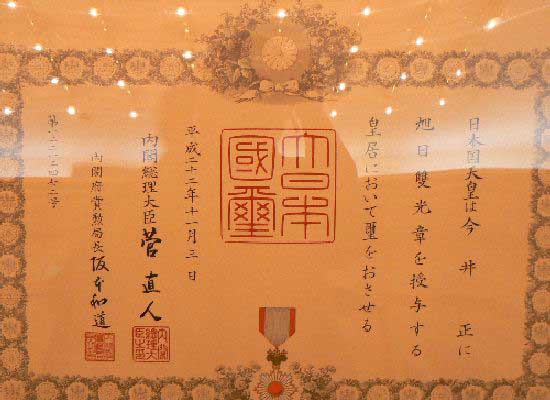 日本国天皇は今井正に
旭日雙光章を授与する
皇居において璽をおさせる
大日本
國璽
平成二十二年十一月三日
内閣総理大臣 菅直人
内閣府賞勲局長